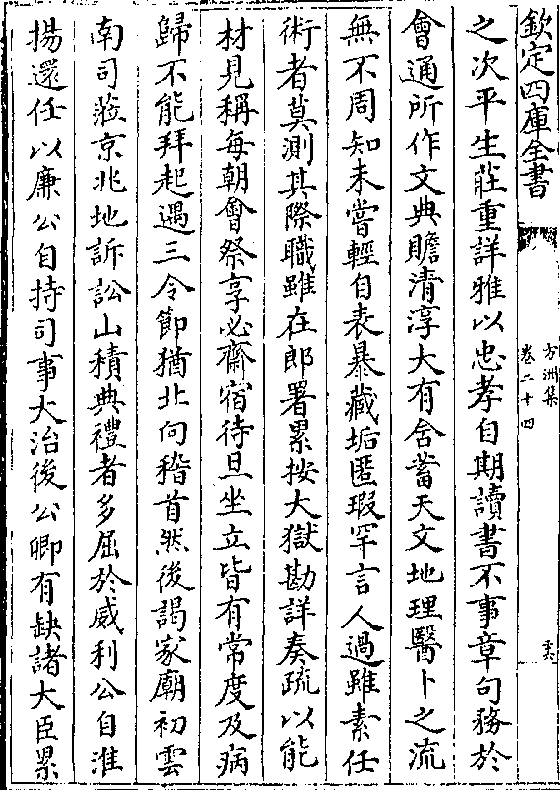 欽定四庫全書
方洲集
卷二十四
之次平生莊重詳雅以忠孝自期讀書不事章句務於
會通所作文典贍清淳大有含蓄天文地理醫卜之流
無不周知未嘗輕自表暴藏垢匿瑕罕言人過雖素任
術者莫測其際職雖在郎署累按大獄勘詳奏疏以能
材見稱每朝會祭享必齋宿待旦坐立皆有常度及病
歸不能拜起遇三令節猶北向稽首然後謁家廟初雲
南司蒞京兆地訴訟山積典禮者多屈於威利公自淮
揚還任以廉公自持司事大治後公卿有缺諸大臣累